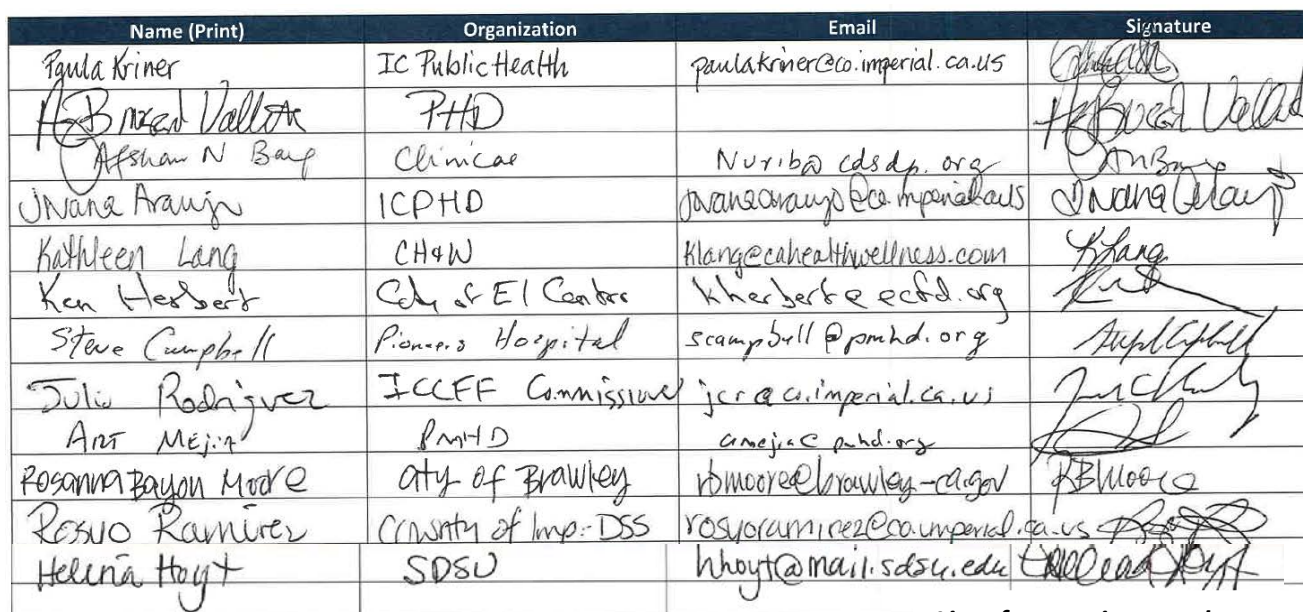 Name (Print) Organization Email Signature
Paula Kriner IC Public Health paulakriner@co.imperial.ca.us
PHD
Afshan N Baig Clinicas Nurib@cdsdp.org ANBaig
Ivana Araujo ICPHD ivanaaraujo@co.imperial.ca.us Ivana Araujo
Kathleen Lang CH&W Klang@cahealthwellness.com KLang
Ken Herbert City of El Centro kherbert@ecfd.org
Steve Campbell Pioneers Hospital scampbell@pmhd.org
Julio Rodriguez ICCFF Commission jcr@co.imperial.ca.us
ART Mejia PMHD amejia@pmhd.org
Rosanna Bayon Moore City of Brawley rbmoore@brawley-ca.gov RBMoore
Rosyo Ramirez County of Imp-DSS rosyoramirez@co.imperial.ca.us
Helina Hoyt SDSU hhoyt@mail.sdsu.edu Helina Hoyt